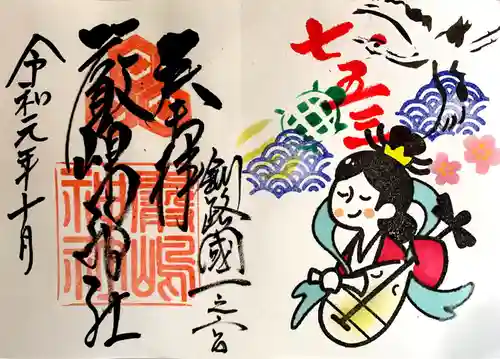 七五三
釧路國一之宮
奉拝
厳嶋神社
令和元年十月